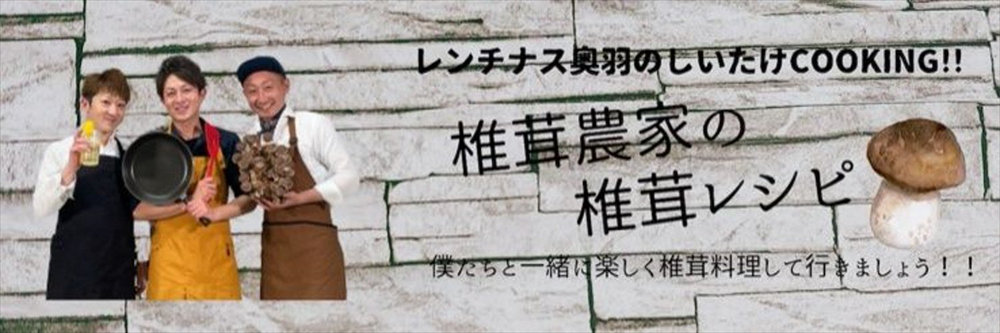 レンチナス奥羽のしいたけCOOKING!!
椎茸農家の
椎茸レシピ
僕たちと一緒に楽しく椎茸料理して行きましょう！！